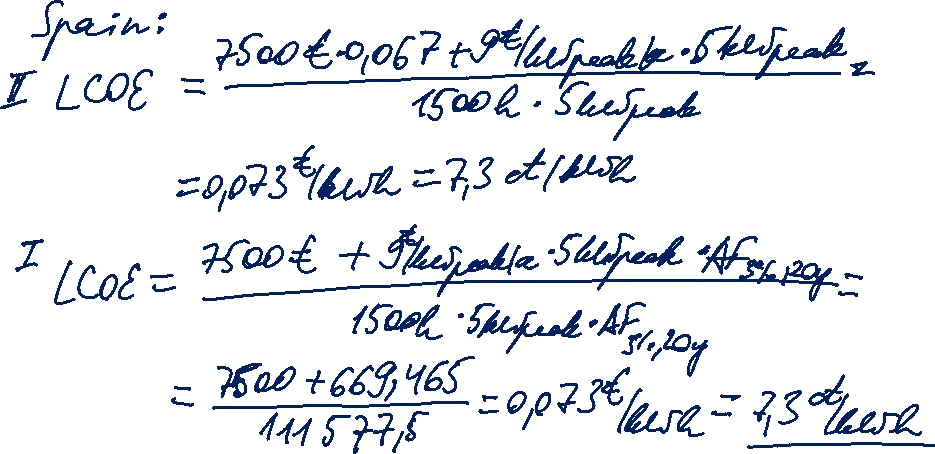 Spain:
II LCOE = (7500 € · 0,067 + 9 €/kWpeak/a · 5 kWpeak) / (1500 h · 5 kWpeak) =
= 0,073 €/kWh = 7,3 ct/kWh
I LCOE = (7500 € + 9 €/kWpeak/a · 5 kWpeak · AF 3%,20y) / (1500 h · 5 kWpeak · AF 3%,20y) =
= (7500 + 669,465) / (111577,5) = 0,073 €/kWh = 7,3 ct/kWh